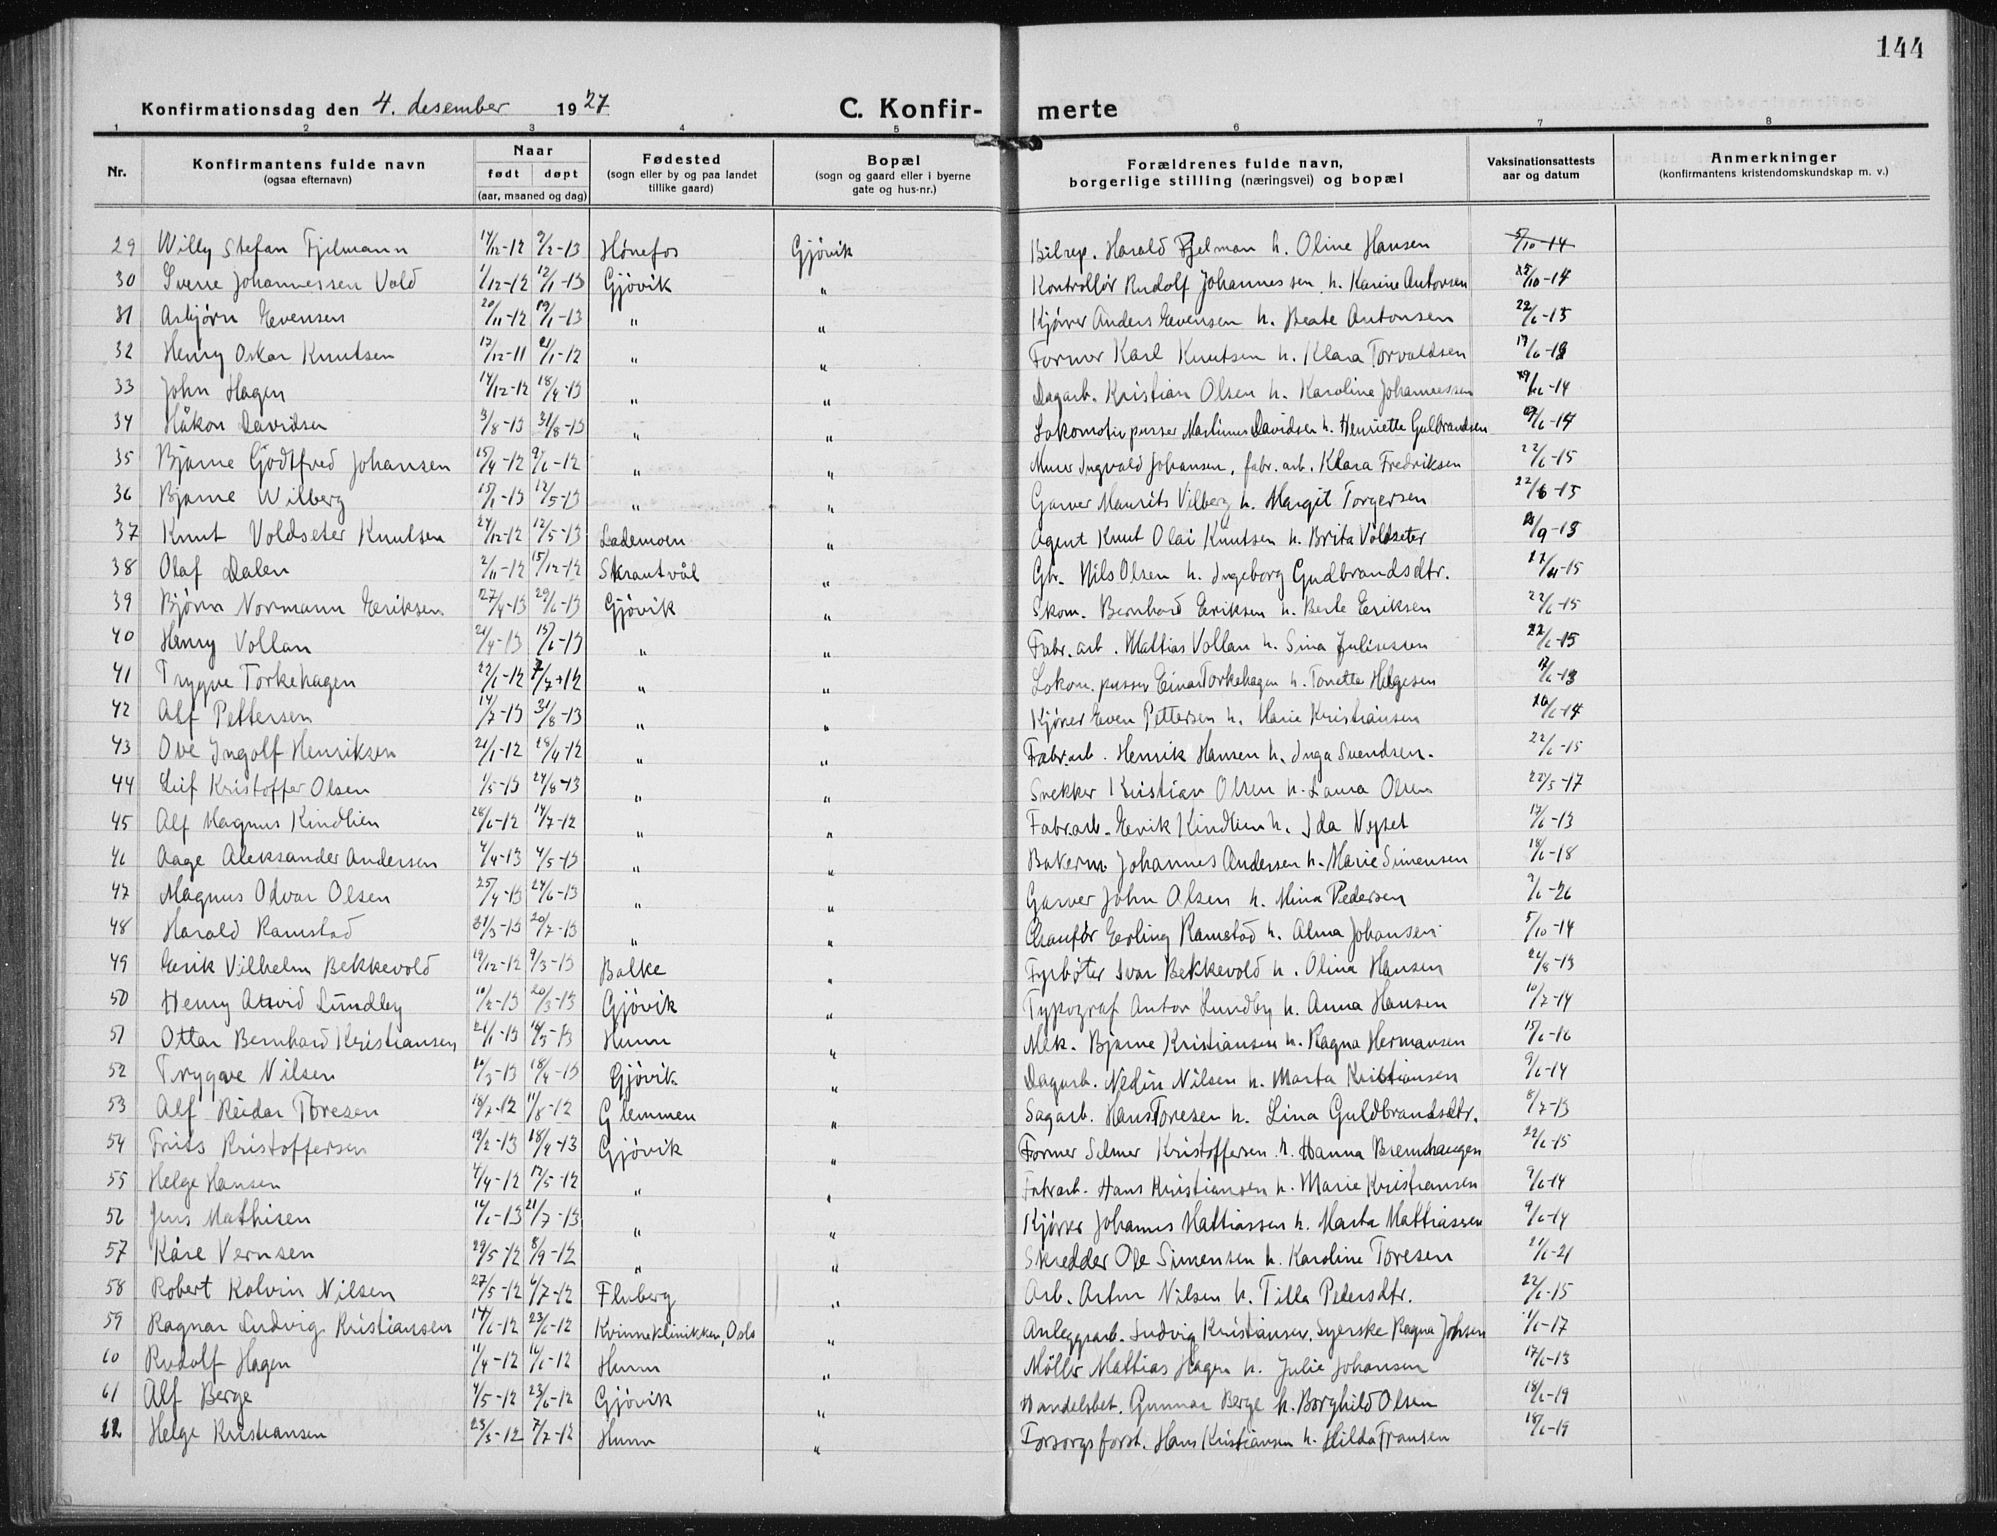 144
Konfirmationsdag den 4. desember 1927 C. Konfir- merte
1 2 3 4 5 6 7 8
Nr. Konfirmantens fulde navn (ogsaa efternavn) Naar født døpt (aar, maaned og dag) Fødested (sogn eller by og paa landet tillike gaard) Bopæl (sogn og gaard eller i byerne gate og hus-nr.) Forældrenes fulde navn, borgerlige stilling (næringsvei) og bopæl Vaksinationsattests aar og datum Anmerkninger (konfirmantens kristendomskundskap m. v.)
29 Willy Stefan Fjelmann 14/12-12 9/2-13 Hønefos Gjøvik Bilrep. Harald Fjelman h. Oline Hansen 5/10-14
30 Sverre Johannessen Vold 1/12-12 12/1-13 Gjøvik " Kontrollør Rudolf Johannessen h. Karine Antonsen 25/10-14
31 Asbjørn Evensen 20/11-12 19/1-13 " " Kjører Anders Evensen h. Beate Antonsen 22/6-15
32 Henry Oskar Knutsen 17/12-11 21/1-12 " " Former Karl Knutsen h. Klara Torvaldsen
33 John Hagen 14/12-12 18/4-13 " " Dagarb. Kristian Olsen h. Karoline Johannessen
34 Håkon Davidsen 3/8-13 31/8-13 " " Lokomotivpusser Martinus Davidsen h. Henriette Gulbrandsen
35 Bjarne Godtfred Johansen 15/4-12 9/6-12 " " Murer Ingvald Johansen, fabr. arb. Klara Fredriksen 22/6-15
36 Bjarne Wilberg 15/1-13 12/5-13 " " Garver Maurits Vilberg h. Margit Torgersen 22/6-15
37 Knut Voldseter Knutsen 24/12-12 12/5-13 Lademoen " Agent Knut Olai Knutsen h. Brita Voldseter
38 Olaf Dalen 2/11-12 15/12-12 Skrautvål " Gbr. Nils Olsen h. Ingeborg Gudbrandsdtr.
39 Bjørn Normann Eriksen 27/4-13 29/6-13 Gjøvik " Skom. Bernhard Eriksen h. Berte Eriksen 22/6-15
40 Henry Vollan 21/4-13 15/6-13 " " Fabr. arb. Mattias Vollan h. Sina Julisessen 22/6-15
41 Trygve Torkehagen 22/6-12 " " Lokom. pusser Einar Torkehagen h. Tonette Helgesen 17/6-13
42 Alf Pettersen 14/7-13 31/8-13 " " Kjører Even Pettersen h. Marie Kristiansen
43 Ove Ingolf Henriksen 21/1-12 28/4-12 " " Fabr.arb. Henrik Hansen h. Inga Svendsen. 22/6-15
44 Leif Kristoffer Olsen 1/5-13 24/8-13 " " Snekker Kristian Olsen h. Laura Olsen 22/5-17
45 Alf Magnus Kindlien 28/6-12 14/7-12 " " Fabr.arb. Eevik Kindlien h. Ida Nyset 17/6-13
46 Aage Aleksander Andersen 4/4-13 4/5-13 " " Bakerm. Johannes Andersen h. Marie Simensen 18/6-18
47 Magnus Odvar Olsen 25/4-13 24/6-13 " " Garver John Olsen h. Mina Pedersen 9/6-26
48 Harald Ramstad 31/3-13 20/7-13 " " Chaufør Eerling Ramstad h. Alma Johansen 5/10-14
49 Eerik Vilhelm Bekkevold 19/12-12 9/3-13 Balke " Fyrbøter Ivar Bekkevold h. Olina Hansen 21/8-13
50 Henry Arvid Lundby 10/2-13 20/3-13 Gjøvik " Typograf Anton Lundby h. Anna Hansen 10/7-14
51 Ottar Bernhard Kristiansen 21/1-13 14/3-13 Hunn " Mek. Bjarne Kristiansen h. Ragna Hermansen 15/6-16
52 Trygve Nilsen 10/3-13 18/4-13 Gjøvik. " Dagarb. Nedin Nilsen h. Marta Kristiansen 9/6-14
53 Alf Reidar Toresen 18/7-12 11/8-12 Glemmen " Sagarb. Hans Toresen h. Lina Guldbrandsdtr. 8/7-13
54 Frits Kristoffersen 19/2-13 18/4-13 Gjøvik " Former Selmer Kristoffersen h. Hanna Bremhaugen 22/6-15
55 Helge Hansen 4/4-12 17/5-12 " " Fabrarb. Hans Kristiansen h. Marie Kristiansen 9/6-14
56 Jens Mathisen 14/6-13 21/7-13 " " Kjører Johannes Mattiassen h. Marta Mattiassen 9/6-14
57 Kåre Vernsen 29/5-12 8/9-12 " " Skredder Ole Simensen h. Karoline Toresen 21/6-21
58 Robert Kalvin Nilsen 27/5-12 6/7-12 Fluberg " Arb. Artur Nilsen h. Tilla Pedersdtr. 22/6-15
59 Ragnar Ludvig Kristiansen 14/6-12 23/6-12 Kvinneklinikken, Oslo " Anleggsarb. Ludvig Kristiansen. Syerske Ragna Johsen 1/6-17
60 Rudolf Hagen 11/4-12 16/6-12 Hunn " Møller Mattias Hagen h. Julie Johansen 17/6-13
61 Alf Berge 4/5-12 23/6-12 Gjøvik " Handelsbet. Gunnar Berge h. Borghild Olsen 18/6-19
62 Helge Kristiansen 23/3-12 7/7-12 Hunn " Forsorgsforst. Hans Kristiansen h. Hilda Fransen 18/6-19